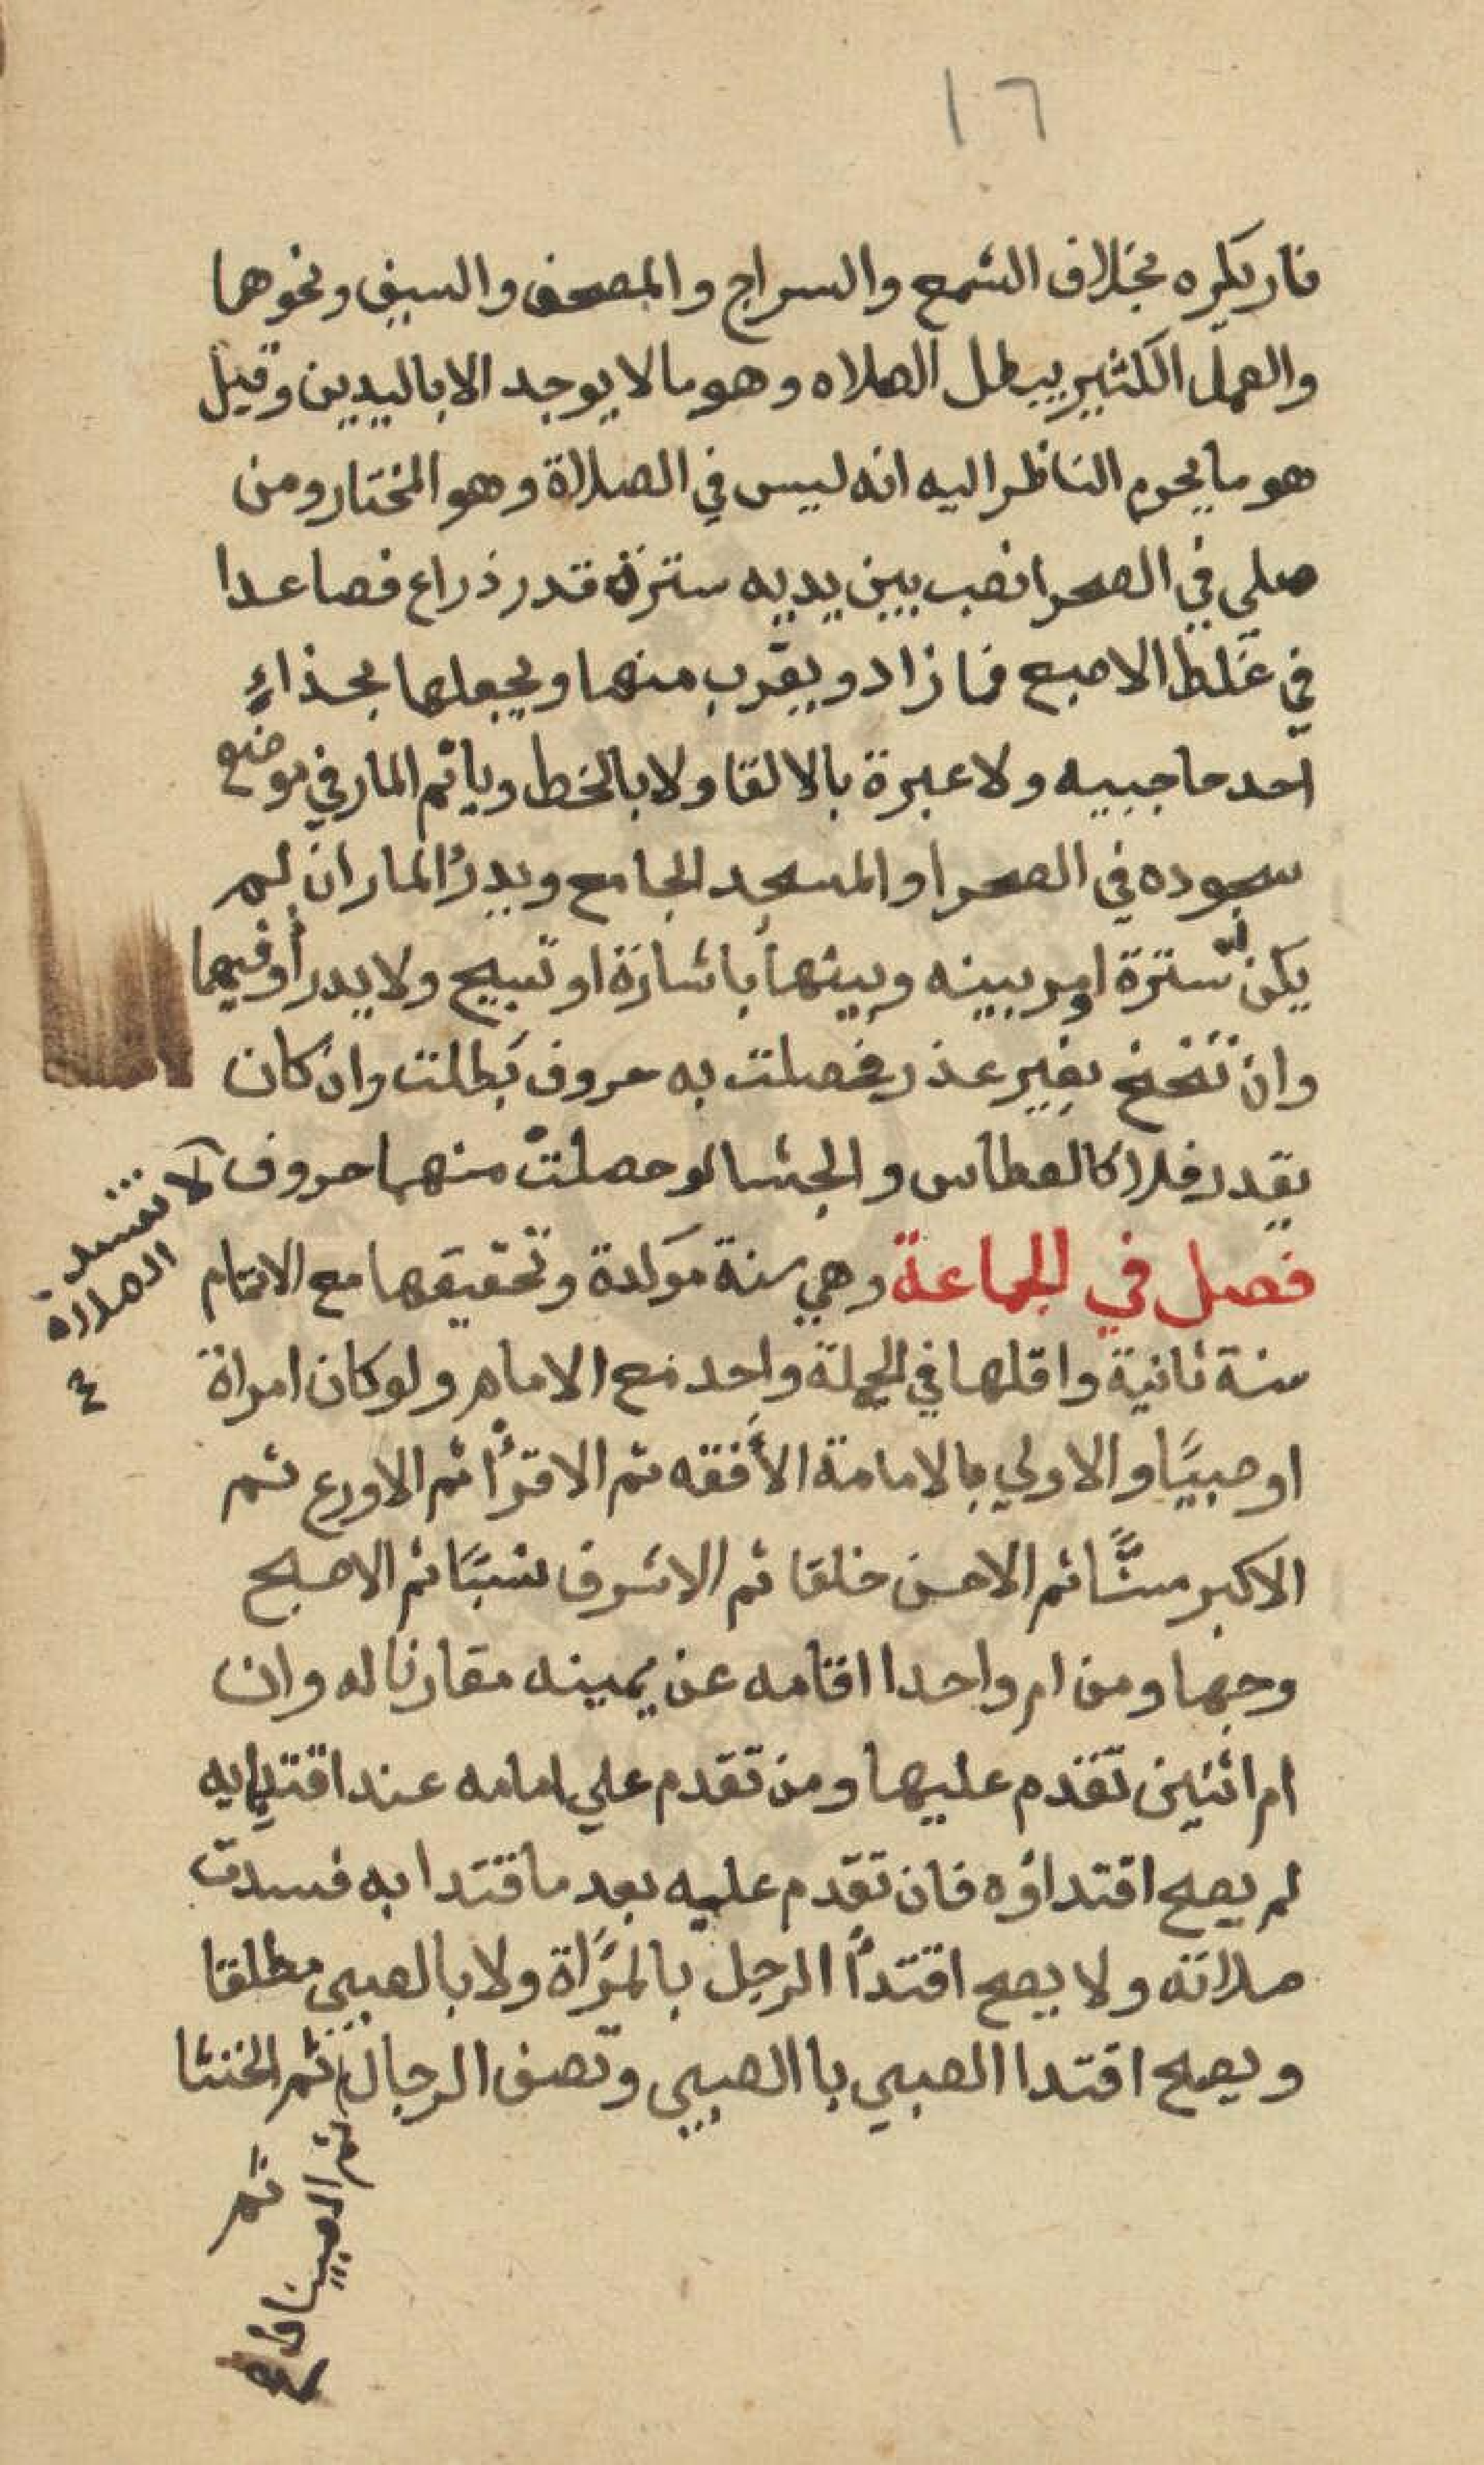 ١٦
نار يكره بخلاف الشمع والسراج والمصحف والسيف ونحوها
والعمل الكثير يبطل الصلاه وهو مالا يوجد الا باليدين وقيل
هو ما يحرم الناظر اليه انه ليس في الصلاة وهو المختار ومن
صلي في الصحرا نصب بين يديه سترة قدر ذراع فصاعدا
في غلظ الاصبع فما زاد ويقرب منها ويجعلها بحذاءِ
احد حاجبيه ولا عبرة بالالقا ولا بالخط وياثم المار في موضع
سجوده في الصحرا والمسجد الجامع ويدرُأ المار ان لم
يكن له سترة او مر بينه وبينها باشارة او تسبيح ولا يدرأ وفيهما
وان تنحنح بغير عذر فحصلت به حروف بَطلت وان كان
بقدر فلا كالعطاس والجشا لو حصلتْ منهما حروف لا تفسد
الصلاة
٤
فصل في الجماعة وهي سنة موكدة وتحقيقها مع الاتمام
سنة ثانية واقلها في الجملة واحد مع الامام ولو كان امراة
او صبيًا والاولي بالامامة الأفقه ثم الاقرأ ثم الاورع ثم
الاكبر سنًّا ثم الاحسن خلقا ثم الاشرف نسبًا ثم الاصبح
وجها ومن ام واحدا اقامه عن يمينه مقارنا له وان
ام اثنين تقدم عليها ومن تقدم علي امامه عند اقتدايه
لم يصح اقتداؤه فان تقدم عليه بعد ما قتدا به فسدت
صلاته ولا يصح اقتدأ الرجل بالمرَأة ولا بالصبي مطلقا
ويصح اقتدا الصبي باالصبي وتصف الرجال ثم الخنثا
ثم الصبيان
ثم